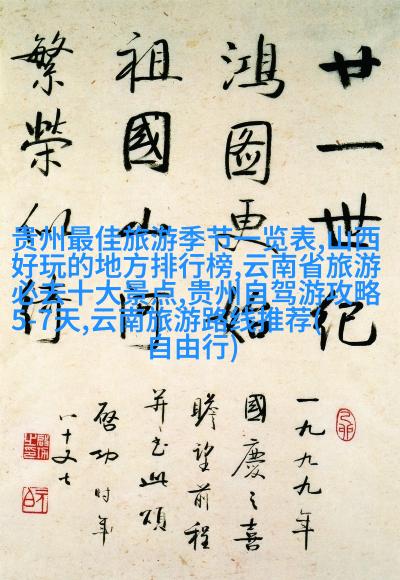 廿一世纪
鸿图更始
祖國山河
繁荣似绮
一九九九年
國慶之喜
瞻望前程
并书此颂
启功时年
八十又七
贵州最佳旅游季节一览表,山西
好玩的地方排行榜,云南省旅游
必去十大景点,贵州自驾游攻略
5-7天,云南旅游路线推荐(
自由行)